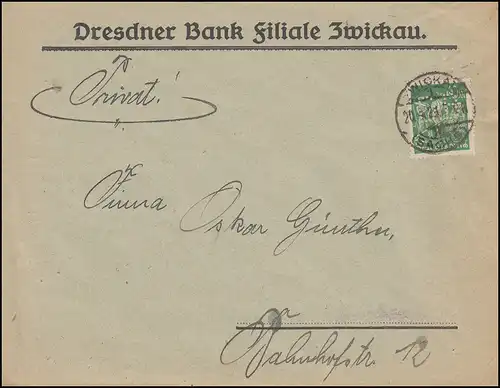 Dresdner Bank Filiale Zwickau.
Privat!
ZWICKAU
(SACHSEN)
Firma
Oskar Günther,
Bahnhofstr. 12